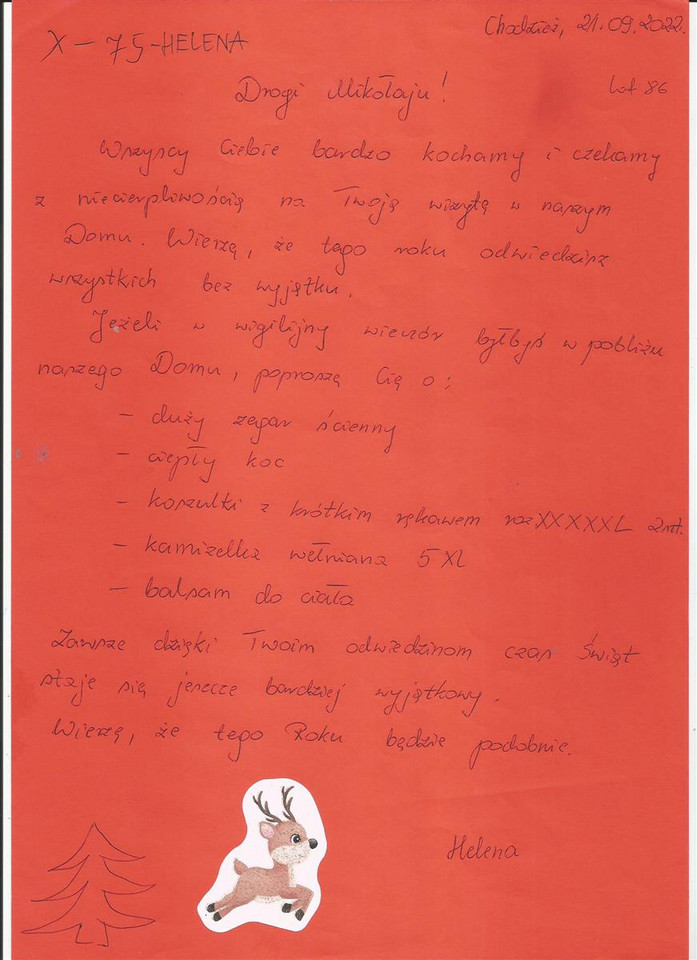 Chodzież, 21.09.2022.
X - 75 - HELENA
Drogi Mikołaju!
Lat 86
Wszyscy Ciebie bardzo kochamy i czekamy
z niecierpliwością na Twoją wizytę w naszym
Domu. Wierzę, że tego roku odwiedzisz
wszystkich bez wyjątku.
Jeżeli w wigilijny wieczór byłbyś w pobliżu
naszego Domu, poproszę Cię o:
- duży zegar ścienny
- ciepły koc
- koszulki z krótkim rękawem roz XXXXXL 2szt.
- kamizelka wełniana 5XL
- balsam do ciała
Zawsze dzięki Twoim odwiedzinom czas Świąt
staje się jeszcze bardziej wyjątkowy.
Wierzę, że tego Roku będzie podobnie.
Helena